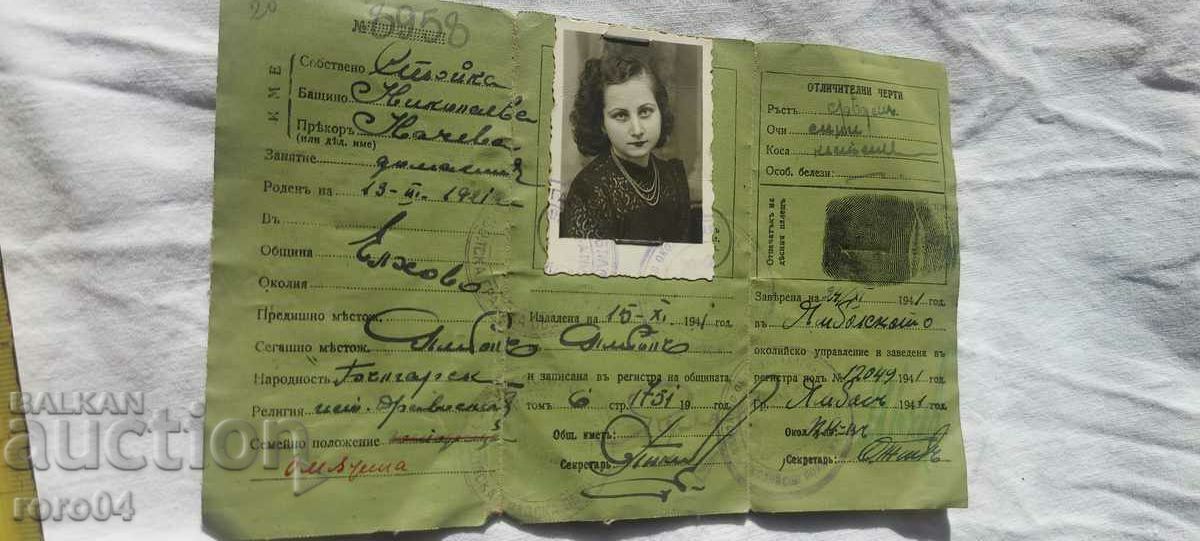 20
№ 8958
КМЕ
Собствено Стойка
Бащино Николаева
Прѣкоръ Качева
(или дѣд. име)
Занятие
Роденъ на 13-III-1921
Въ
Община Елхово
Околия
Предишно мѣстож.
Сегашно мѣстож. Ямболъ
Народность Българск
Религия ист. православна
Семейно положение
омѫжена
Издадена на 15-XI 1941 год.
Ямболъ
и записана въ регистра на общината
томъ 6 стр. 1731 19 год.
Общ. кметъ:
Секретарь:
ОТЛИЧИТЕЛНИ ЧЕРТИ
Ръстъ срѣденъ
Очи
Коса
Особ. белези:
Отпечатъкъ на
дѣсния палецъ
Завѣрена на XI 1941 год.
въ Ямболското
околийско управление и заведена въ
регистра подъ № 12049 1941 год.
Гр. Ямболъ 1941 год.
Окол.
Секретарь:
BALKAN
auction
roro04